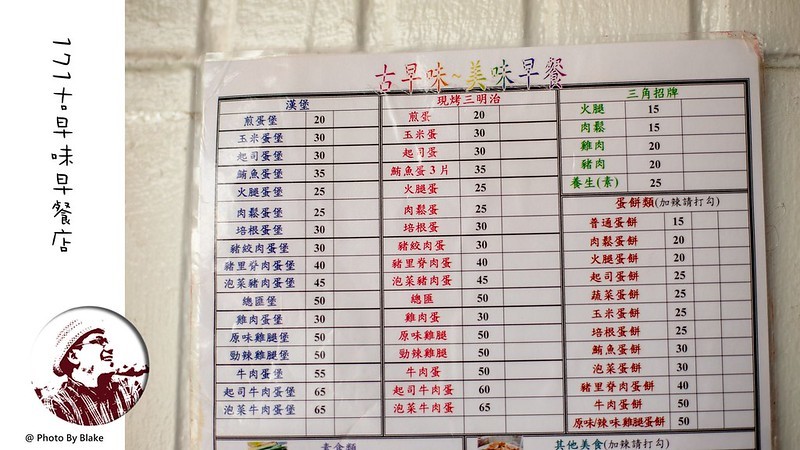 171古早味早餐店
@ Photo By Blake
古早味~美味早餐
漢堡
煎蛋堡 20
玉米蛋堡 30
起司蛋堡 30
鮪魚蛋堡 35
火腿蛋堡 25
肉鬆蛋堡 25
培根蛋堡 30
豬絞肉蛋堡 30
豬里脊肉蛋堡 40
泡菜豬肉蛋堡 45
總匯堡 50
雞肉蛋堡 30
原味雞腿堡 50
勁辣雞腿堡 50
牛肉蛋堡 55
起司牛肉蛋堡 65
泡菜牛肉蛋堡 65
現烤三明治
煎蛋 20
玉米蛋 30
起司蛋 30
鮪魚蛋3片 35
火腿蛋 25
肉鬆蛋 25
培根蛋 30
豬絞肉蛋 30
豬里脊肉蛋 40
泡菜豬肉蛋 45
總匯 50
雞肉蛋 30
原味雞腿 50
勁辣雞腿 50
牛肉蛋 50
起司牛肉蛋 60
泡菜牛肉蛋 65
三角招牌
火腿 15
肉鬆 15
雞肉 20
豬肉 20
養生(素) 25
蛋餅類(加辣請打勾)
普通蛋餅 15
肉鬆蛋餅 20
火腿蛋餅 20
起司蛋餅 25
蔬菜蛋餅 25
玉米蛋餅 25
培根蛋餅 25
鮪魚蛋餅 30
泡菜蛋餅 30
豬里脊肉蛋餅 40
牛肉蛋餅 50
原味/辣味雞腿蛋餅 50
素食類
其他美食(加辣請打勾)